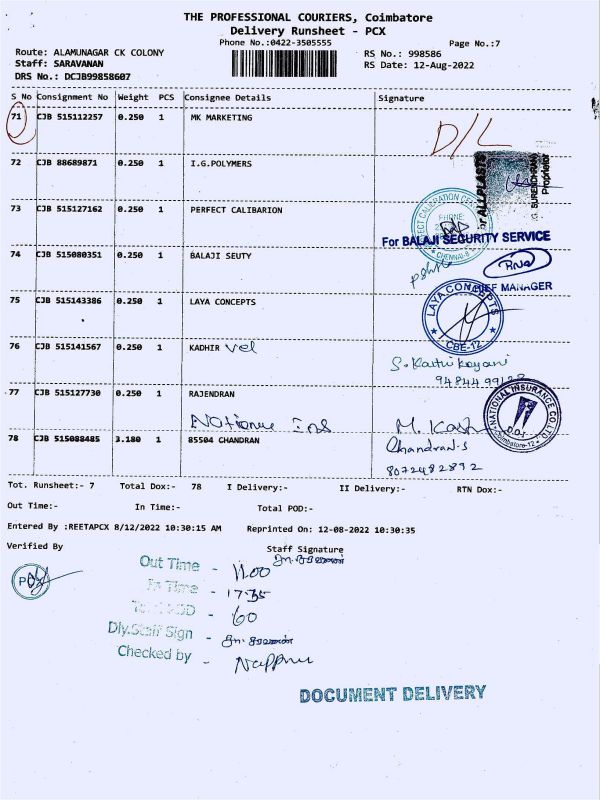 THE PROFESSIONAL COURIERS, Coimbatore
Delivery Runsheet - PCX
Phone No.:0422-3505555
Page No.:7
Route: ALAMUNAGAR CK COLONY
RS No.: 998586
Staff: SARAVANAN
RS Date: 12-Aug-2022
DRS No.: DCJB99858607
S No Consignment No Weight PCS Consignee Details Signature
71 CJB 515112257 0.250 1 MK MARKETING
D/L
72 CJB 88689871 0.250 1 I.G.POLYMERS
ALLPLASTS
Proprietor
73 CJB 515127162 0.250 1 PERFECT CALIBARION
PHONE:
CHENNAI-8
For BALAJI SECURITY SERVICE
74 CJB 515080351 0.250 1 BALAJI SEUTY
CHIEF MANAGER
75 CJB 515143386 0.250 1 LAYA CONCEPTS
LAYA CONCEPTS
CBE-12
76 CJB 515141567 0.250 1 KADHIR vel
S. Karthikayani
77 CJB 515127730 0.250 1 RAJENDRAN
NATIONAL INSURANCE CO.LTD.
D.O-I
Coimbatore-12
M. Kash
78 CJB 515088485 3.180 1 85504 CHANDRAN
Chandran.s
8072482892
Tot. Runsheet:- 7 Total Dox:- 78 I Delivery:- II Delivery:- RTN Dox:-
Out Time:- In Time:- Total POD:-
Entered By :REETAPCX 8/12/2022 10:30:15 AM Reprinted On: 12-08-2022 10:30:35
Verified By
Staff Signature
Out Time - 11.00
In Time - 17:35
- 60
Dly.Staff Sign -
Checked by -
DOCUMENT DELIVERY